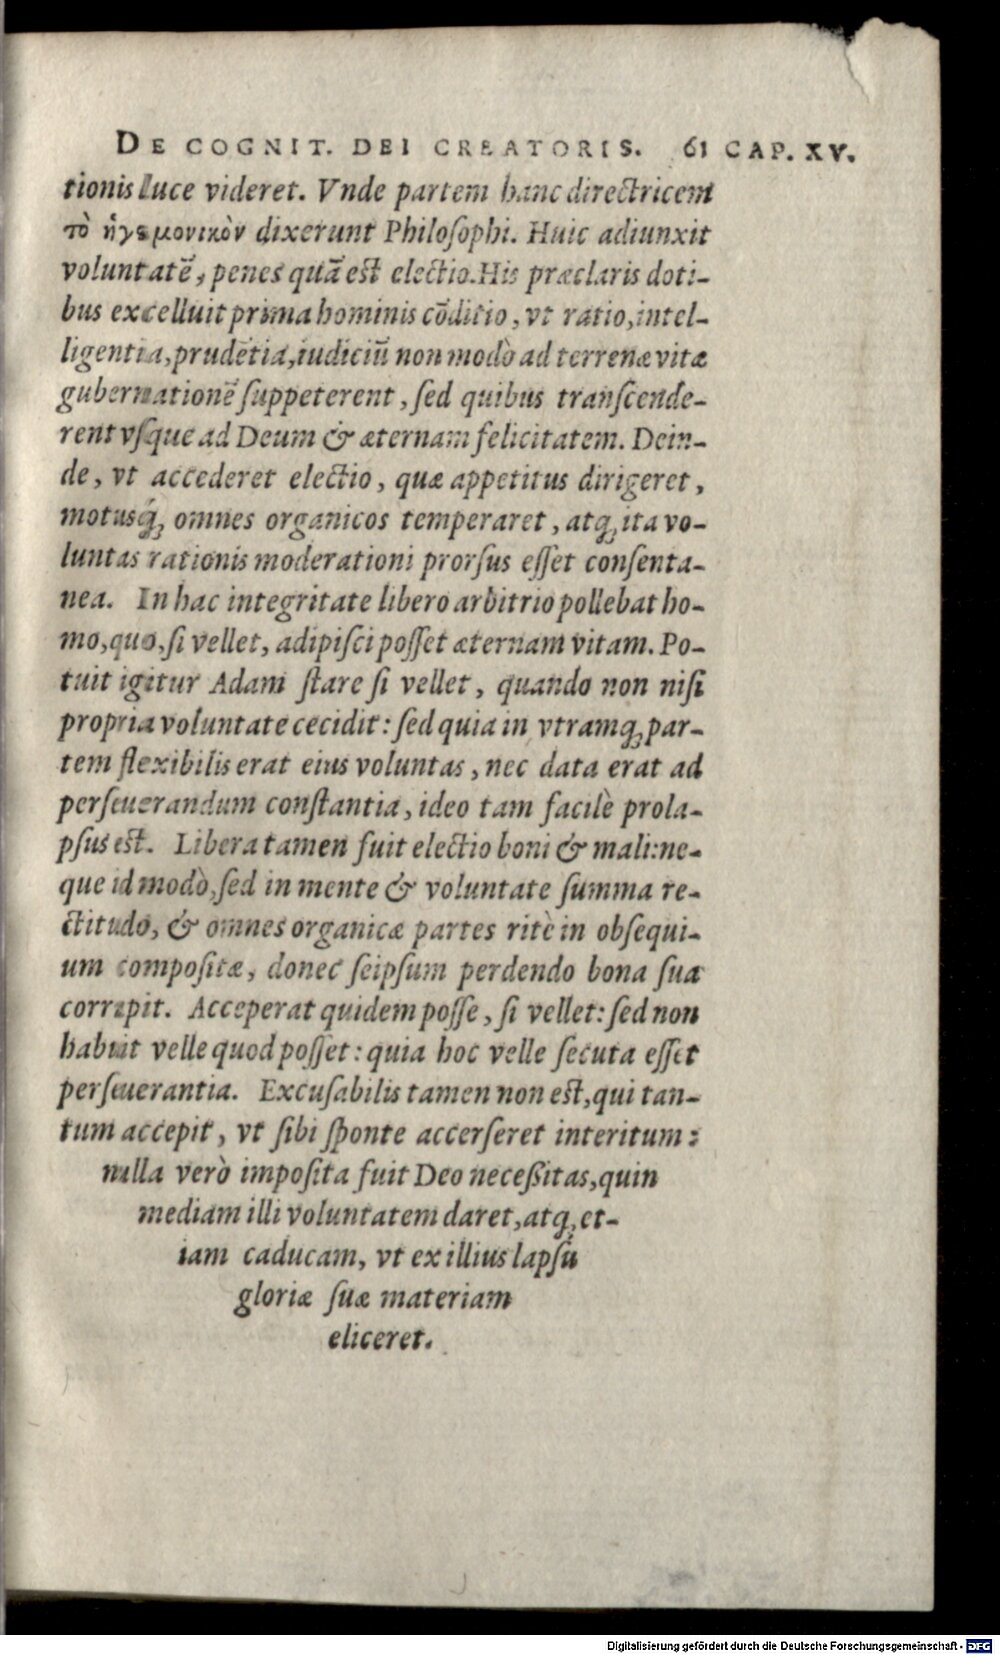 DE COGNIT. DEI CREATORIS. 61 CAP. XV.
tionis luce videret. Vnde partem hanc directricem
τὸ ἡγεμονικὸν dixerunt Philoſophi. Huic adiunxit
voluntatē, penes quā est electio. His præclaris doti-
bus excelluit prima hominis cōditio, vt ratio, intel-
ligentia, prudētia, iudiciū non modò ad terrenæ vitæ
gubernationē ſuppeterent, ſed quibus tranſcende-
rent vſque ad Deum & æternam felicitatem. Dein-
de, vt accederet electio, quæ appetitus dirigeret,
motusq́; omnes organicos temperaret, atq; ita vo-
luntas rationis moderationi prorſus eſſet conſenta-
nea. In hac integritate libero arbitrio pollebat ho-
mo, quo, ſi vellet, adipiſci poſſet æternam vitam. Po-
tuit igitur Adam ſtare ſi vellet, quando non niſi
propria voluntate cecidit: ſed quia in vtramq; par-
tem flexibilis erat eius voluntas, nec data erat ad
perſeuerandum conſtantia, ideo tam facilè prola-
pſus est. Libera tamen fuit electio boni & mali: ne-
que id modò, ſed in mente & voluntate ſumma re-
ctitudo, & omnes organicæ partes ritè in obſequi-
um compoſitæ, donec ſeipſum perdendo bona ſua
corrupit. Acceperat quidem poſſe, ſi vellet: ſed non
habuit velle quod poſſet: quia hoc velle ſecuta eſſet
perſeuerantia. Excuſabilis tamen non est, qui tan-
tum accepit, vt ſibi ſponte accerſeret interitum:
nulla verò impoſita fuit Deo neceßitas, quin
mediam illi voluntatem daret, atq; et-
iam caducam, vt ex illius lapſu
gloriæ ſuæ materiam
eliceret.
Digitalisierung gefördert durch die Deutsche Forschungsgemeinschaft - DFG